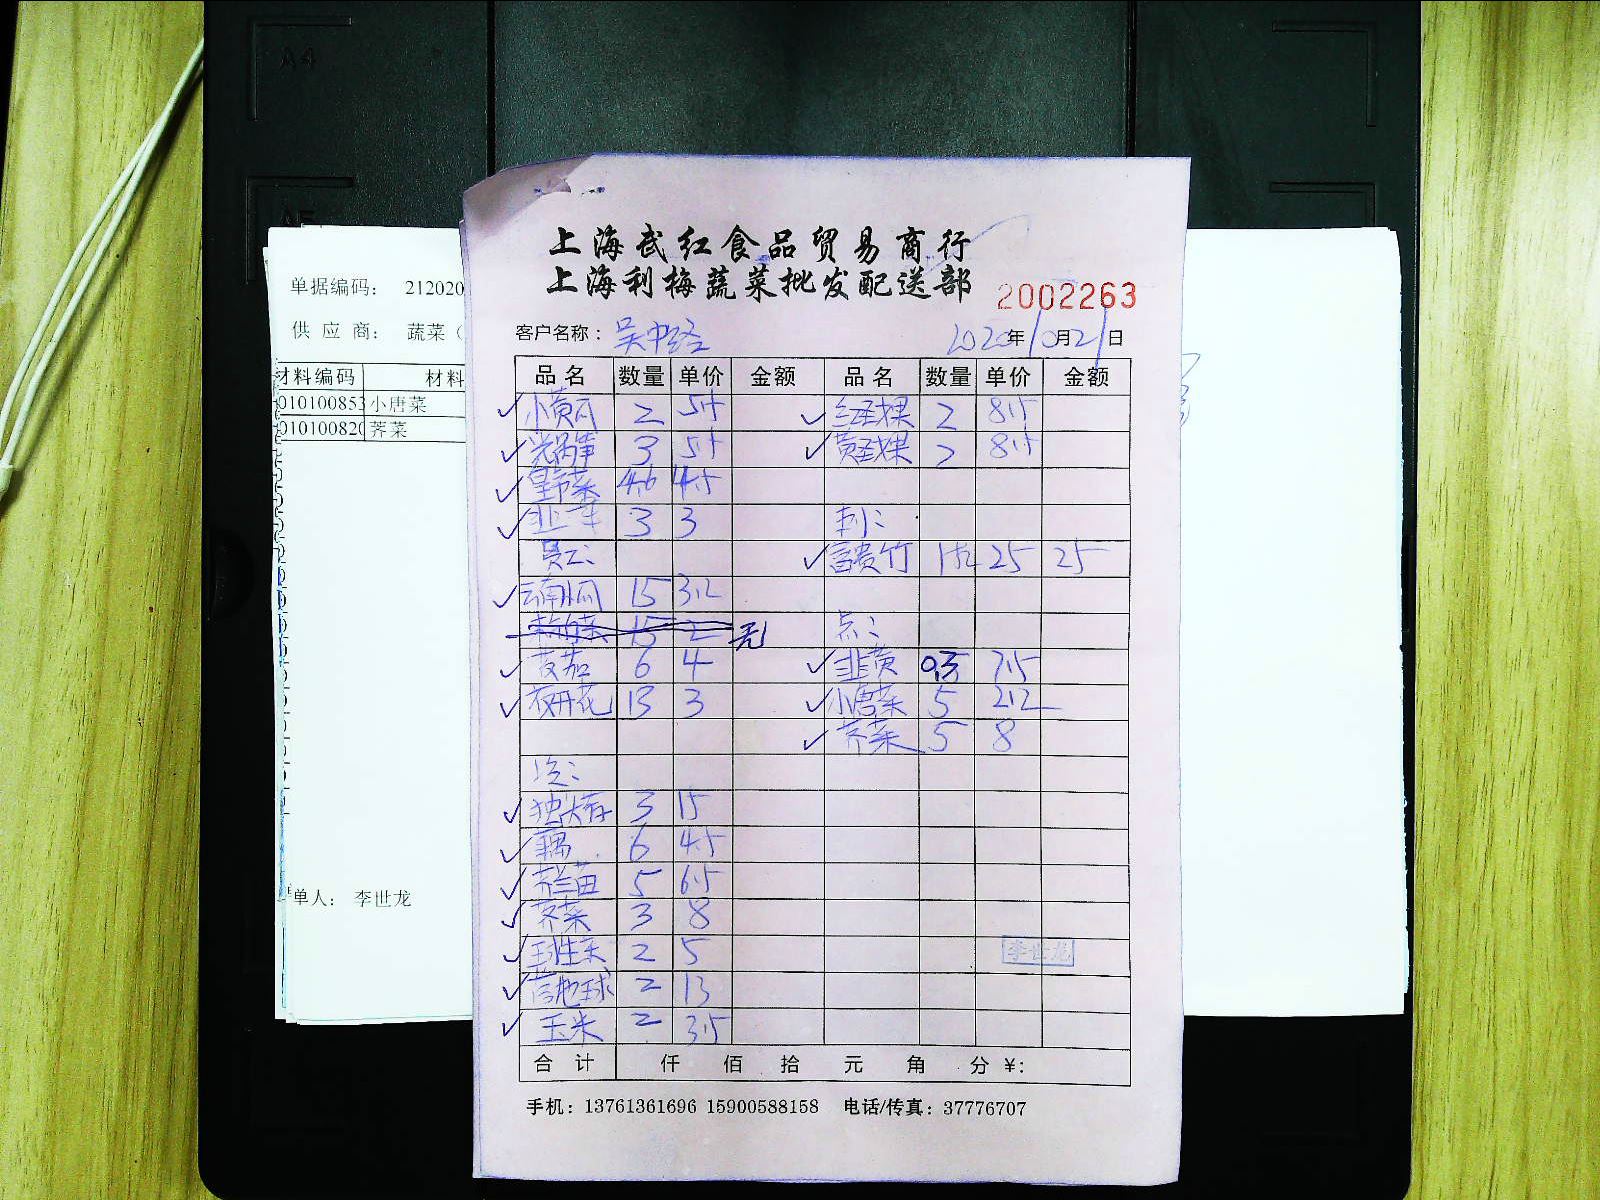 上海武红食品贸易商行
上海利梅蔬菜批发配送部
2002263
客户名称： 吴中路 2020年10月21日
品名 数量 单价 金额 品名 数量 单价 金额
小黄瓜 2 5.5 红圣果 2 8.5
光莴笋 3 5.5 黄圣果 2 8.5
4.6 4.5
3 3
员工：
富贵竹 1扎 25 25
云南小瓜 15 3.2
15 2 无 点：
茄 6 4 韭黄 0.3 7.5
夜开花 13 3 小唐菜 5 2.2
荠菜 5 8
冷：
独大存 3 15
藕 6 4.5
芥兰苗 5 6.5
荠菜 3 8
球生菜 2 5
2 13
玉米 2 3.5
李世龙
合计 仟 佰 拾 元 角 分 ¥:
手机：13761361696 15900588158 电话/传真：37776707
单据编码： 212020
供应商： 蔬菜（
材料编码 材料
010100853 小唐菜
01010082 荠菜
单人： 李世龙
A4
A5